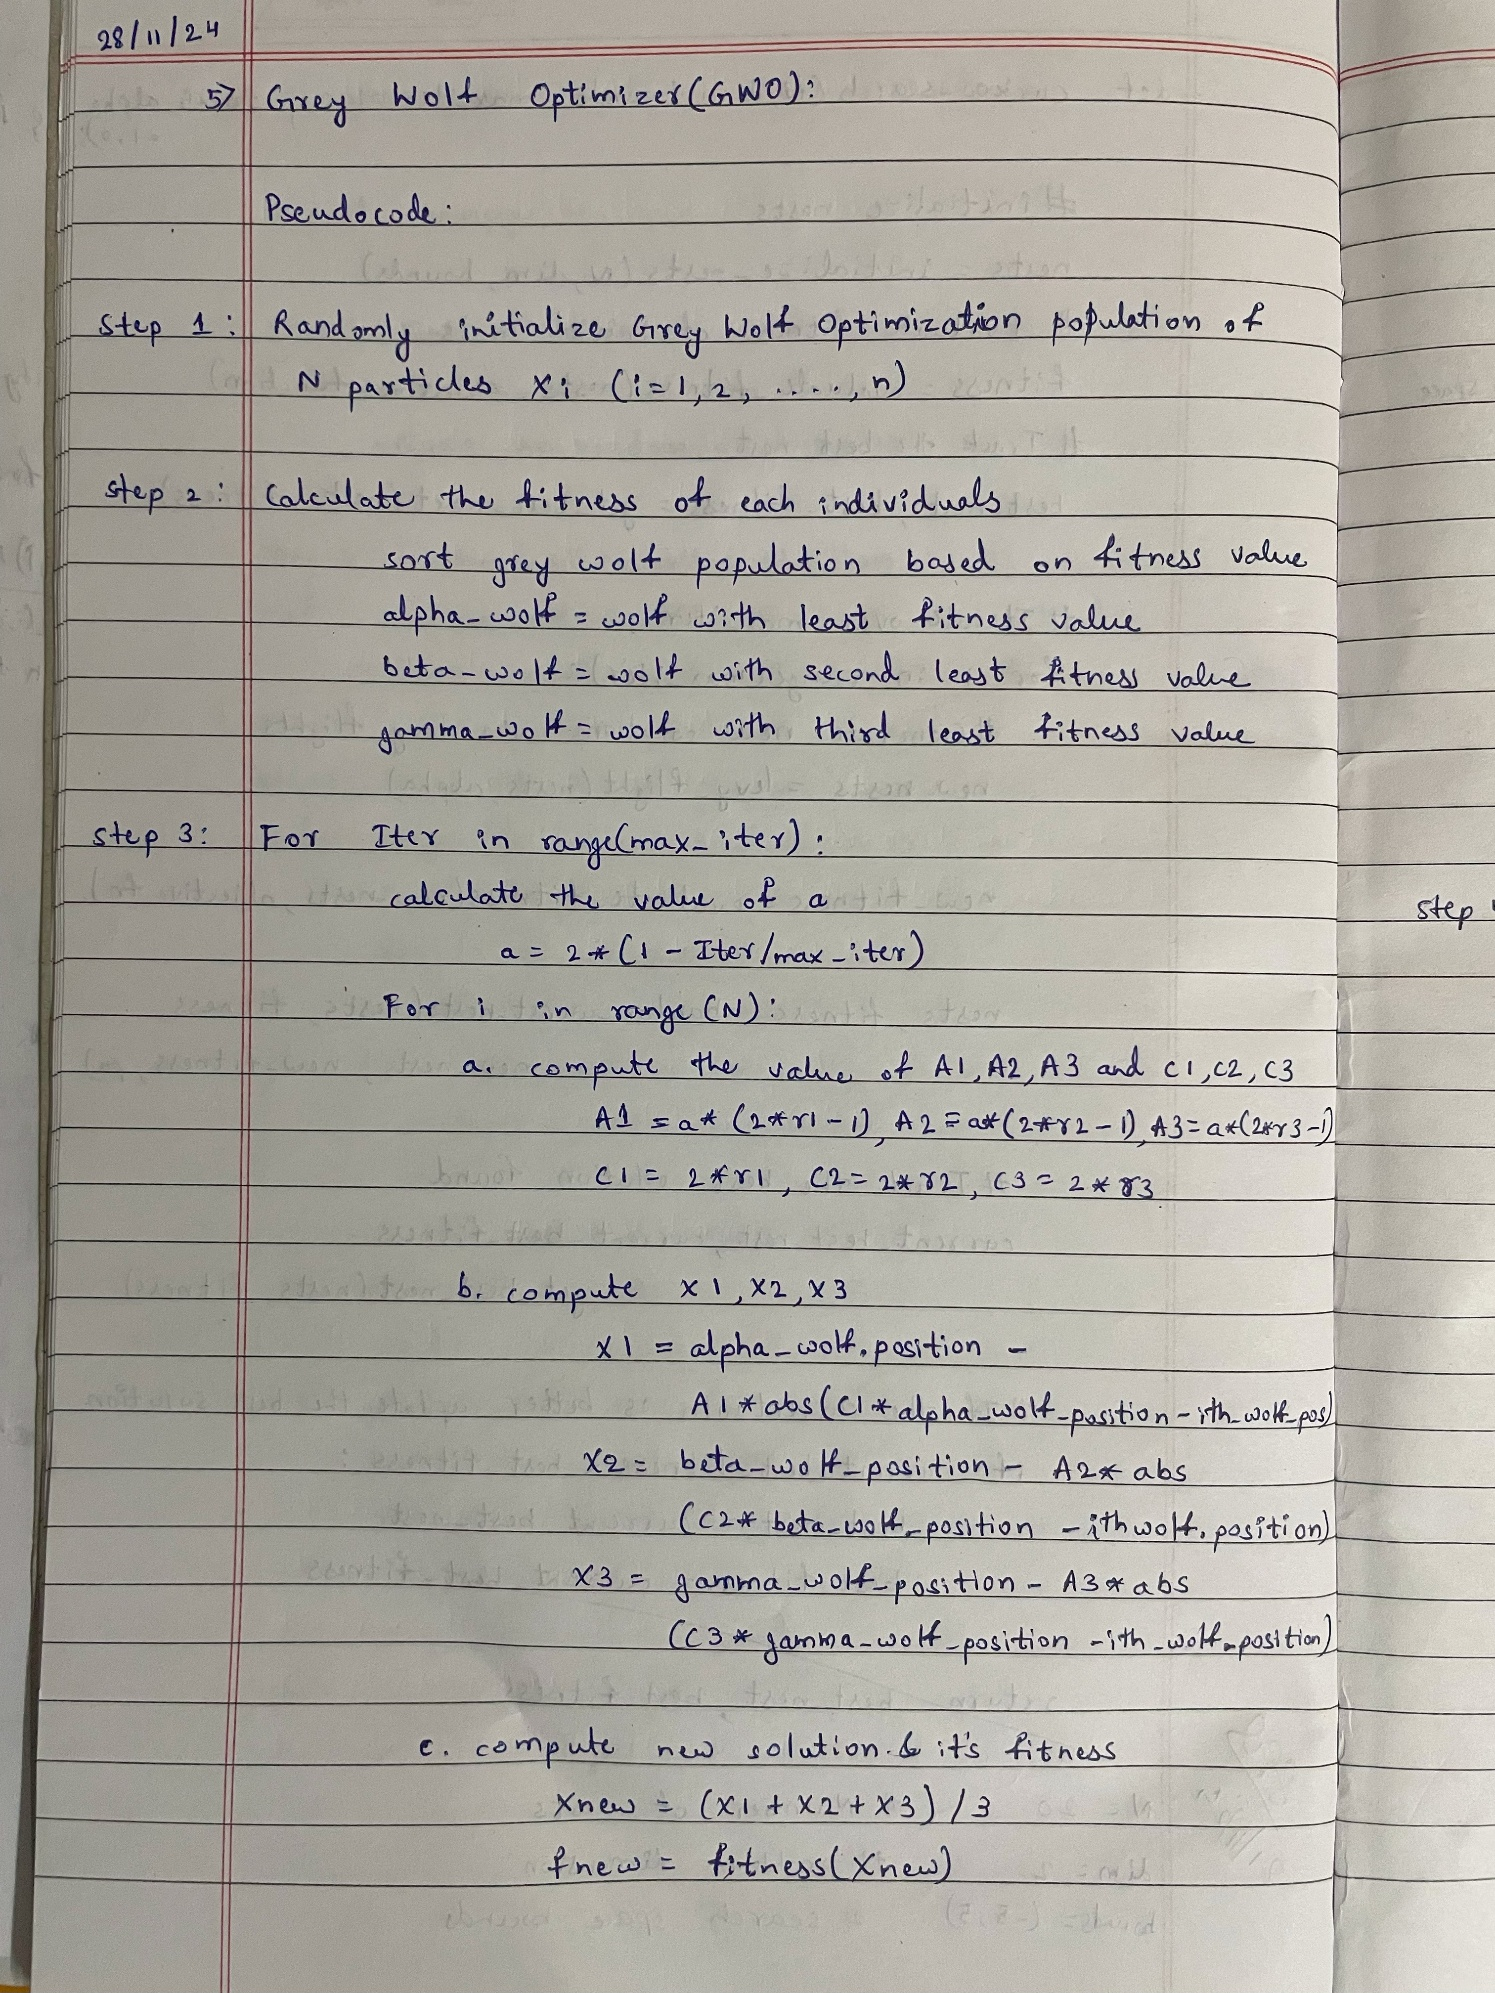 28/11/24
5) Grey Wolf Optimizer(GWO):
Pseudocode:
Step 1: Randomly initialize Grey Wolf Optimization population of
N particles Xi (i=1, 2, ...., n)
step 2: Calculate the fitness of each individuals
sort grey wolf population based on fitness value
alpha_wolf = wolf with least fitness value
beta_wolf = wolf with second least fitness value
gamma_wolf = wolf with third least fitness value
step 3: For Iter in range(max_iter):
calculate the value of a
a = 2*(1 - Iter/max_iter)
For i in range (N):
a. compute the value of A1, A2, A3 and C1, C2, C3
A1 = a* (2*r1-1), A2 = a*(2*r2-1), A3 = a*(2*r3-1)
C1 = 2*r1, C2 = 2*r2, C3 = 2*r3
b. compute X1, X2, X3
X1 = alpha_wolf.position -
A1*abs(C1*alpha_wolf_position - ith_wolf_pos)
X2 = beta_wolf_position - A2* abs
(C2* beta_wolf_position - ith wolf.position)
X3 = gamma_wolf_position - A3* abs
(C3* gamma_wolf_position - ith_wolf_position)
c. compute new solution & it's fitness
Xnew = (X1 + X2 + X3) / 3
fnew = fitness(Xnew)
step